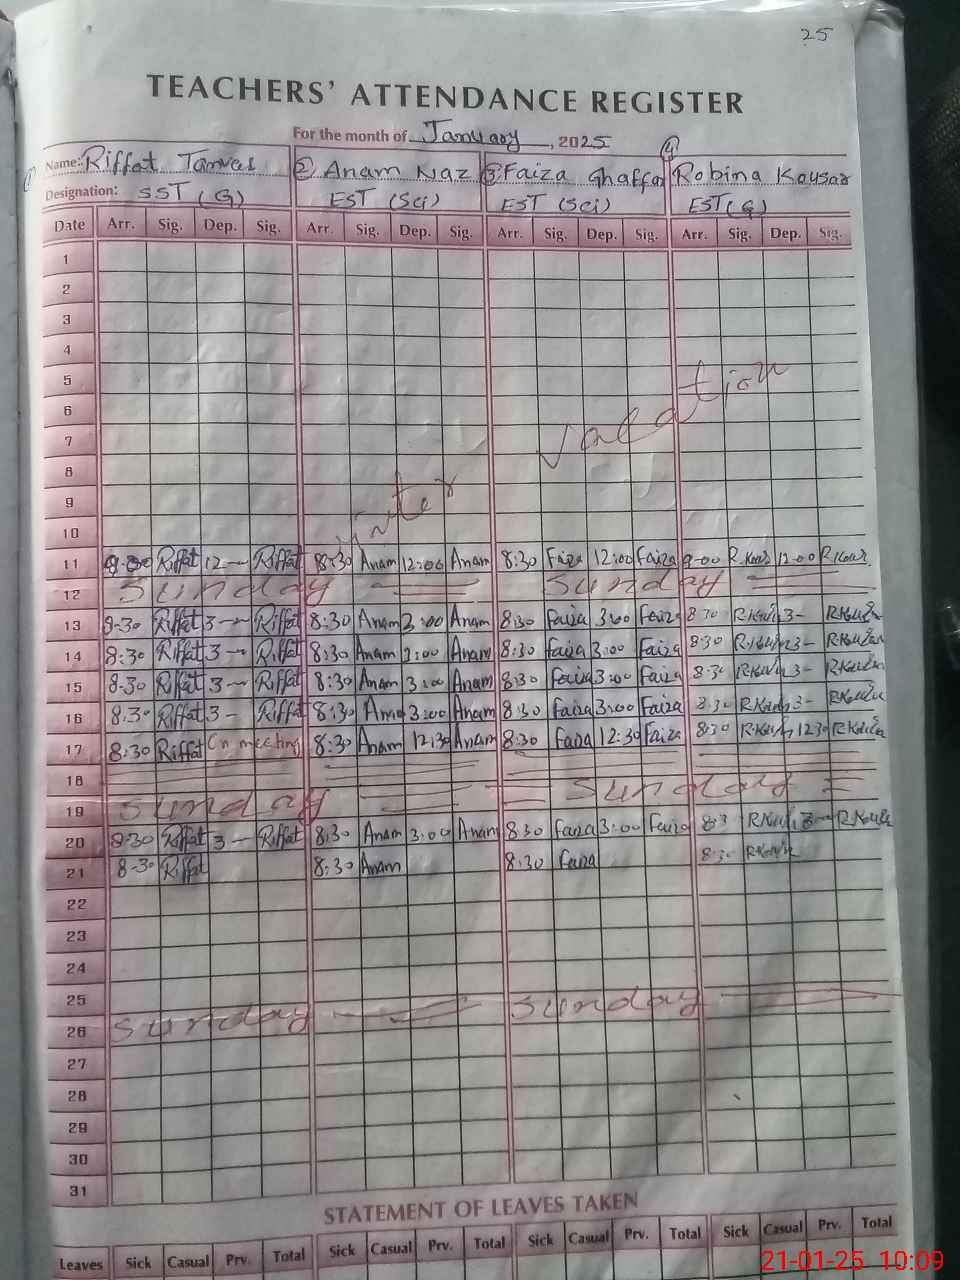 25
TEACHERS' ATTENDANCE REGISTER
For the month of January, 2025
① Name: Riffat ② Anam Naz ③ Faiza Ghaffar ④ Robina Kausar
Designation: SST (G) EST (Sci) EST (Sci) EST (G)
Date Arr. Sig. Dep. Sig. Arr. Sig. Dep. Sig. Arr. Sig. Dep. Sig. Arr. Sig. Dep. Sig.
1
2
3
4
5
6
7
8
9
10
winter vacation
11 Riffat 12 — Riffat 8:30 Anam 12:00 Anam 8:30 Faiza 12:00 Faiza 9-00 12-00
12 Sunday Sunday
13 8-30 Riffat 3 — Riffat 8:30 Anam 3:00 Anam 8:30 Faiza 3:00 Faiza 8:30 3-
14 8:30 Riffat 3 — Riffat 8:30 Anam 3:00 Anam 8:30 Faiza 3:00 Faiza 8:30 3-
15 8-30 Riffat 3 — Riffat 8:30 Anam 3:00 Anam 8:30 Faiza 3:00 Faiza 8:30 3-
16 8:30 Riffat 3 - Riffat 8:30 3:00 Anam 8:30 Faiza 3:00 Faiza 8:30 3-
17 8:30 Riffat On meeting 8:30 Anam 12:30 Anam 8:30 Faiza 12:30 Faiza 8:30 12:30
18
19 Sunday Sunday
20 8-30 Riffat 3 — Riffat 8:30 Anam 3:00 Anam 8:30 Faiza 3:00 Faiza 3 —
21 8-30 Riffat 8:30 Anam 8:30 Faiza 8:30
22
23
24
25
26 Sunday Sunday
27
28
29
30
31
STATEMENT OF LEAVES TAKEN
Leaves Sick Casual Prv. Total Sick Casual Prv. Total Sick Casual Prv. Total Sick Casual Prv. Total
21-01-25 10:09